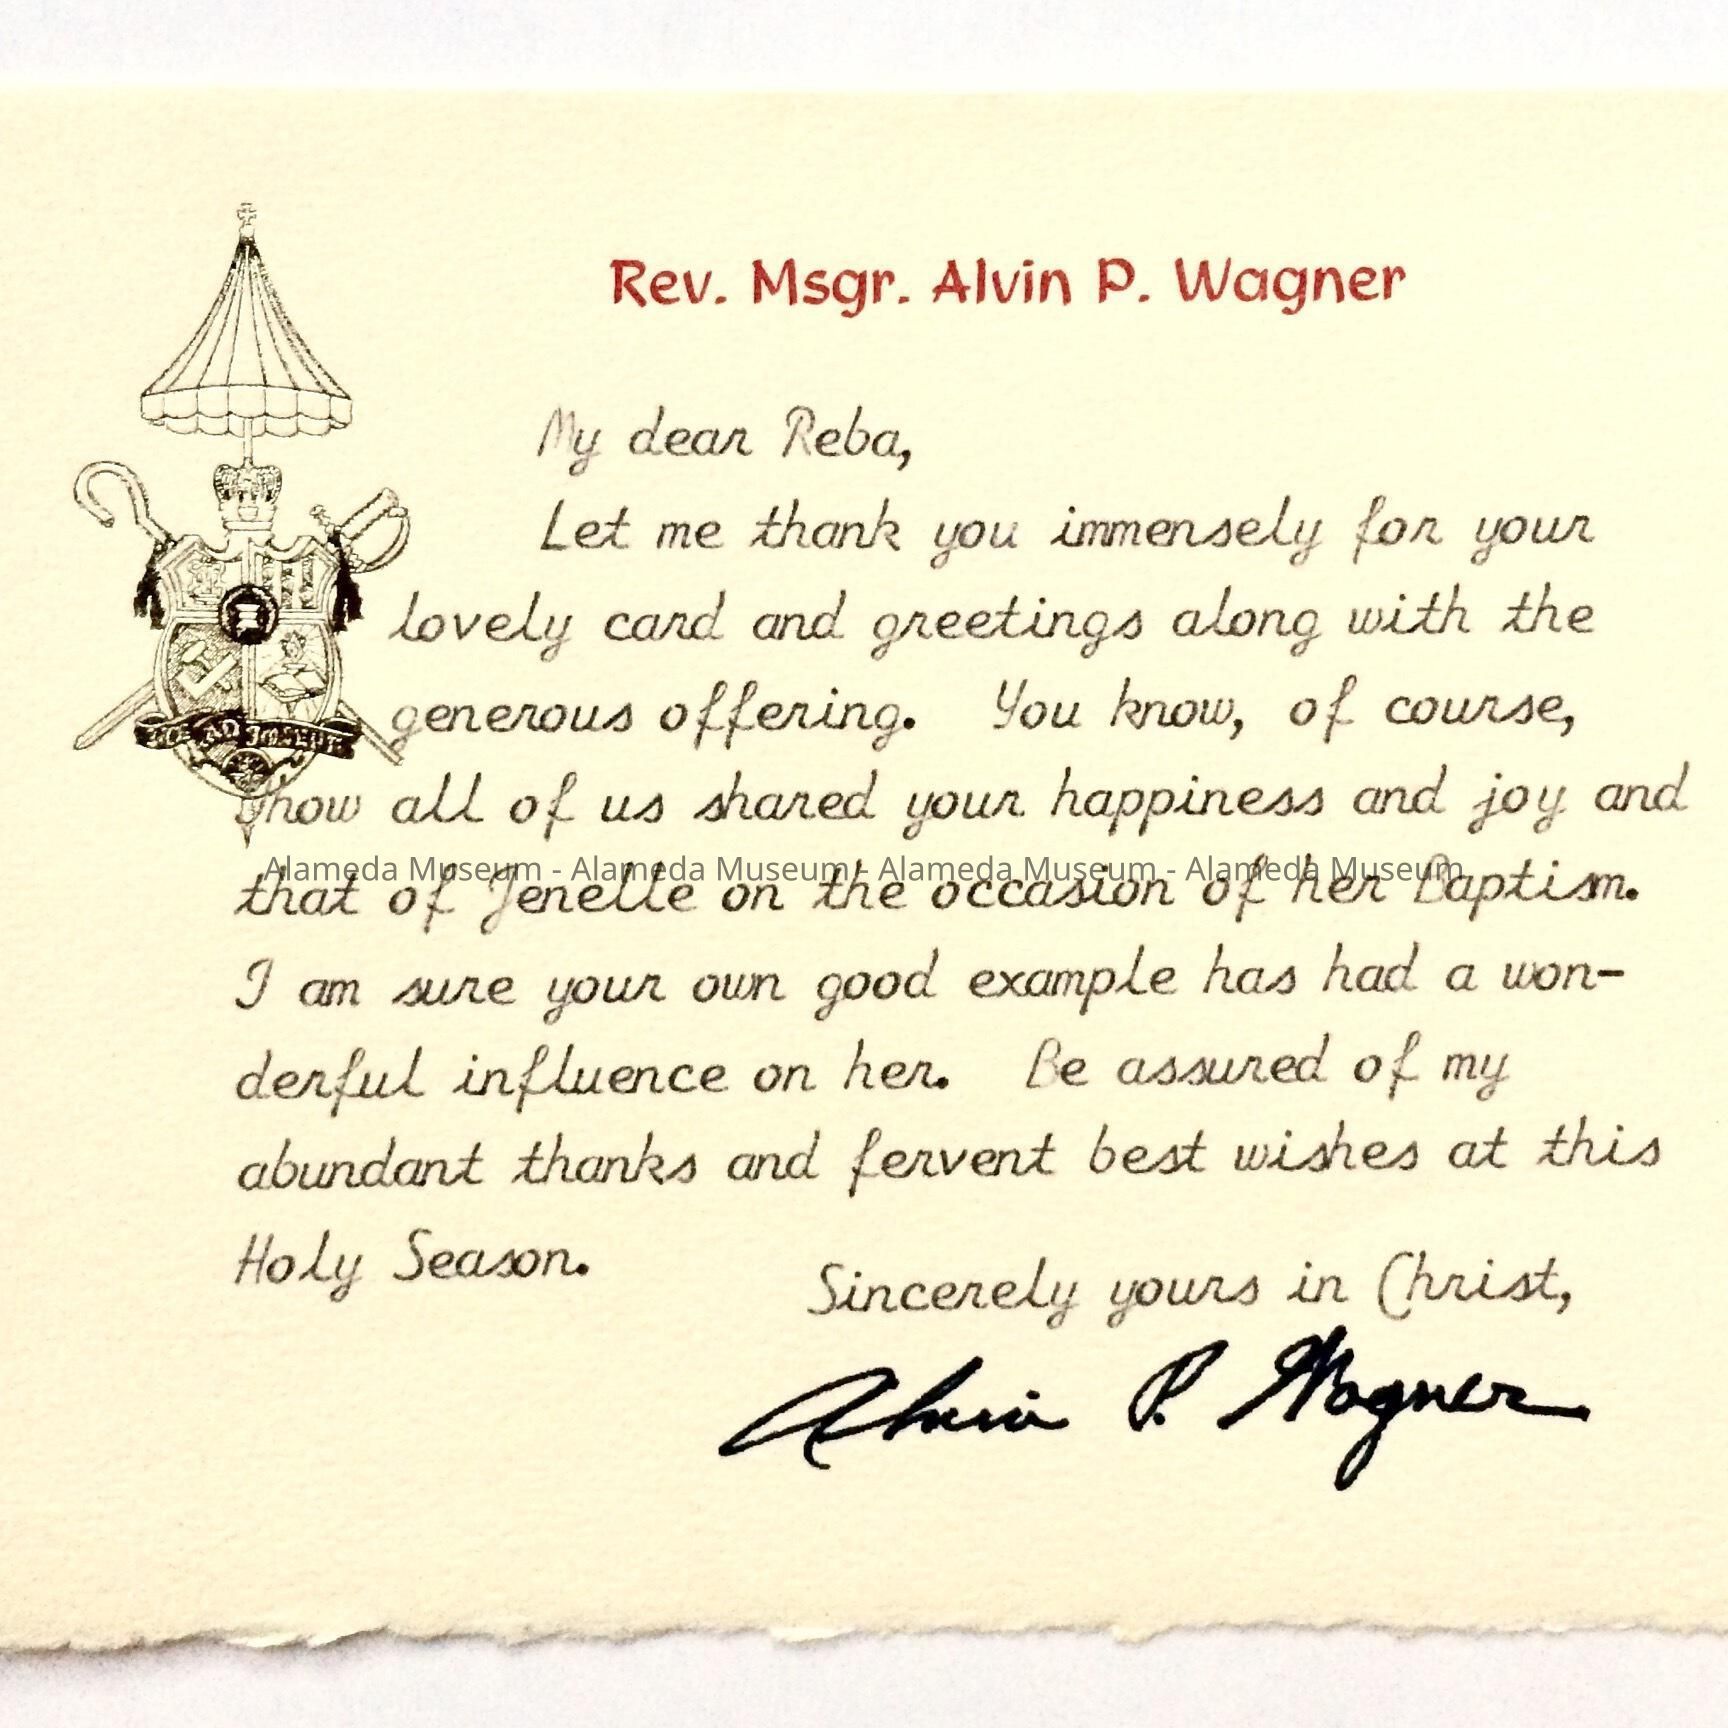 Rev. Msgr. Alvin P. Wagner
My dear Reba,
Let me thank you immensely for your
lovely card and greetings along with the
generous offering. You know, of course,
how all of us shared your happiness and joy and
Alameda Museum - Alameda Museum - Alameda Museum - Alameda Museum
that of Jenelle on the occasion of her Baptism.
I am sure your own good example has had a won-
derful influence on her. Be assured of my
abundant thanks and fervent best wishes at this
Holy Season.
Sincerely yours in Christ,
Alvin P. Wagner